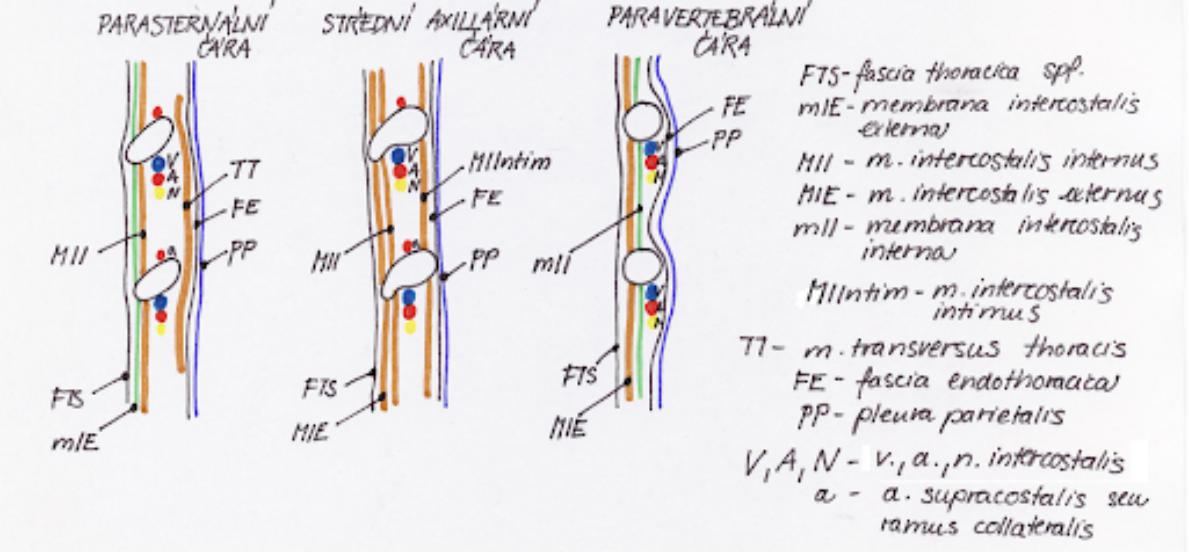 PARASTERNÁLNÍ
ČÁRA
STŘEDNÍ AXILLÁRNÍ
ČÁRA
PARAVERTEBRÁLNÍ
ČÁRA
V
A
N
a
TT
FE
PP
MII
FTS
mIE
V
A
N
a
MIIntim
FE
PP
MII
FTS
MIE
V
A
N
FE
PP
mII
V
A
N
FTS
MIE
FTS - fascia thoracica spf.
mIE - membrana intercostalis
externa
MII - m. intercostalis internus
MIE - m. intercostalis externus
mII - membrana intercostalis
interna
MIIntim - m. intercostalis
intimus
TT - m. transversus thoracis
FE - fascia endothoracica
PP - pleura parietalis
V, A, N - v., a., n. intercostalis
a - a. supracostalis seu
ramus collateralis